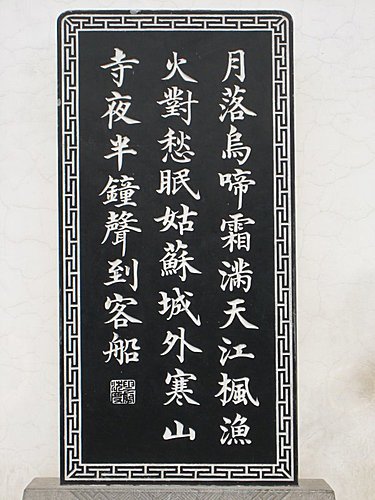 月落烏啼霜滿天江楓漁
火對愁眠姑蘇城外寒山
寺夜半鐘聲到客船